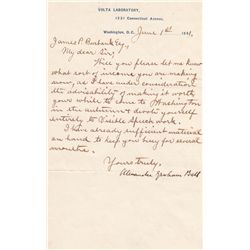 VOLTA LABORATORY,
1221 Connecticut Avenue,
Washington, D.C. June 1st 18
James P. Burbank Esq.,
My dear Sir:
Will you please let me know
what sort of income you are making
now, as I have under consideration
the advisability of making it worth
your while to come to Washington
in the autumn & devote yourself
entirely to Visible Speech work.
I have already sufficient material
on hand to keep you busy for several
months.
Yours truly,
Alexander Graham Bell